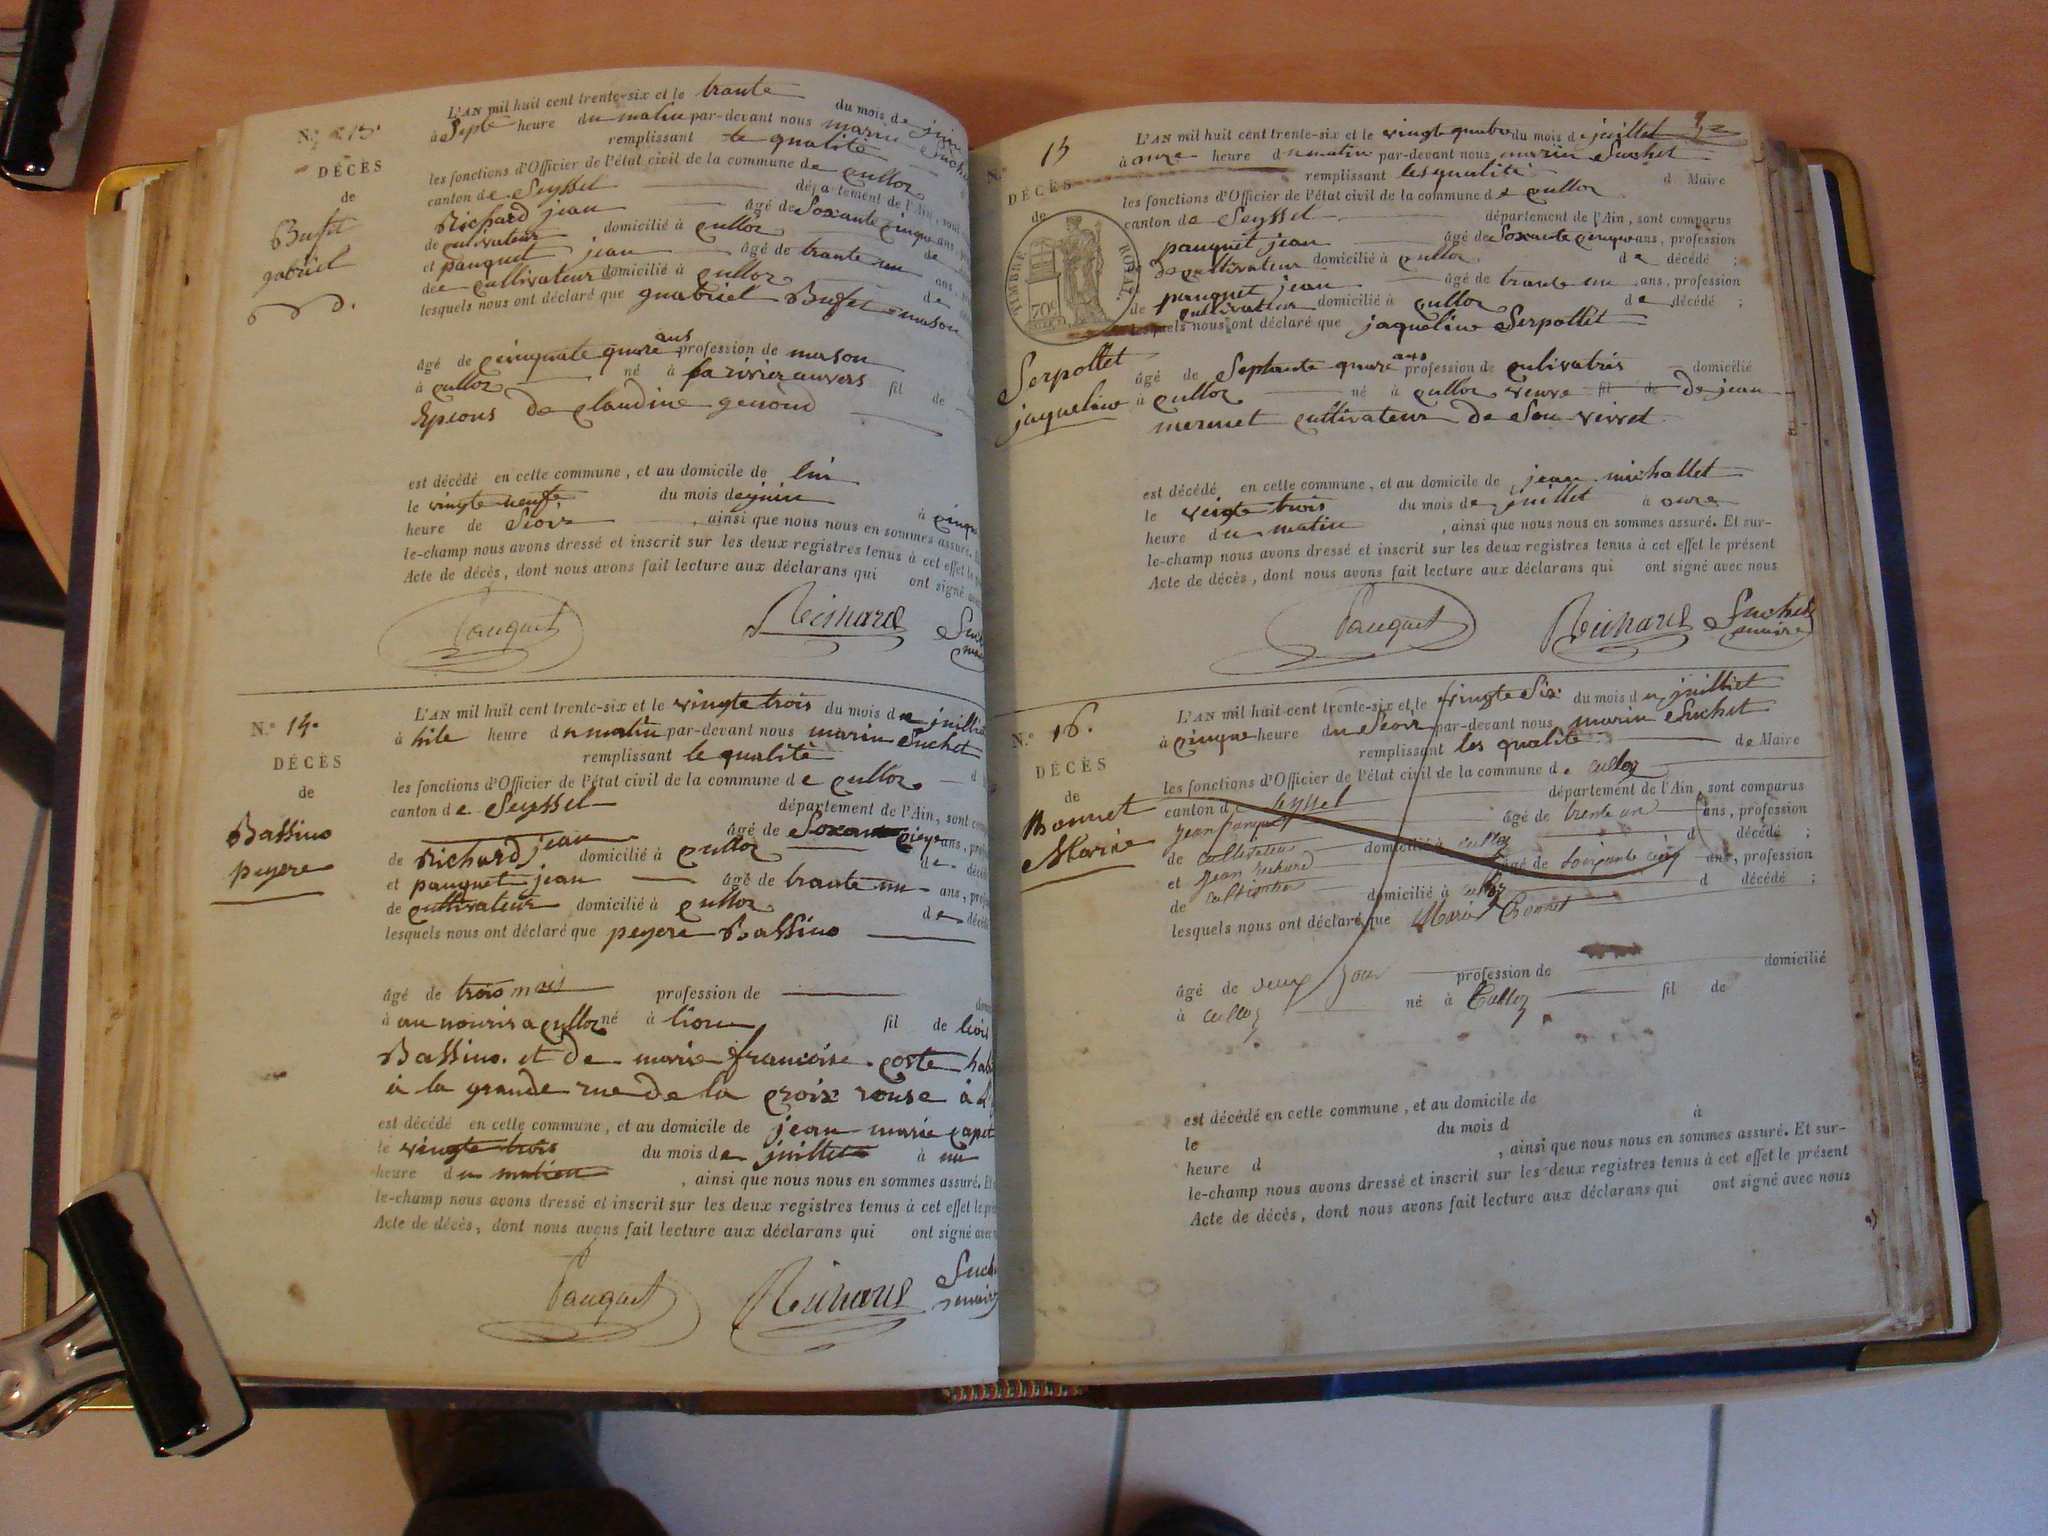 N.° 13.
DÉCÈS
de
Bufet
gabriel
L'AN mil huit cent trente-six et le trante du mois de juin
à Sept heure du matin par-devant nous marin Suchet
remplissant le qualité
les fonctions d'Officier de l'état civil de la commune de culloz
canton de Seyssel département de l'Ain, sont
Richard jean âgé de Soxante cinque ans,
de cultivateur domicilié à culloz de
et pauquet jean âgé de trante un ans,
de cultivateur domicilié à culloz de
lesquels nous ont déclaré que guabriel Bufet mason
âgé de cinquate quare ans profession de mason
à culloz né à la rivier anvers fil de
Epeous de claudine genoud
est décédé en cette commune, et au domicile de lui
le vingte neufe du mois de juin à cinque
heure de Seoir , ainsi que nous nous en sommes assuré.
le-champ nous avons dressé et inscrit sur les deux registres tenus à cet effet le
Acte de décès, dont nous avons fait lecture aux déclarans qui ont signé avec
Pauquet Richard
N.° 14.
DÉCÈS
de
Bassino
peyere
L'AN mil huit cent trente-six et le vingte trois du mois de juilliet
à hite heure du matin par-devant nous marin Suchet
remplissant le qualité
les fonctions d'Officier de l'état civil de la commune de culloz d
canton de Seyssel département de l'Ain, sont
Richard jean âgé de Soxante cinque ans,
de domicilié à culloz de
et pauquet jean âgé de trante un ans,
de cultivateur domicilié à culloz de
lesquels nous ont déclaré que peyere Bassino
âgé de trois mois profession de
à au nouris a culloz né à lion fil de
Bassino. et de marie francoise coste
à la grande rue de la croix rouse à
est décédé en cette commune, et au domicile de jean marie
le vingte trois du mois de juillet à un
heure du matien , ainsi que nous nous en sommes assuré. Et
le-champ nous avons dressé et inscrit sur les deux registres tenus à cet effet le
Acte de décès, dont nous avons fait lecture aux déclarans qui ont signé avec
Pauquet Richard
N.° 15
DÉCÈS
de
TIMBRE ROYAL.
70c
Serpollet
jaqueline
L'AN mil huit cent trente-six et le vingte quatre du mois de juillet
à onze heure du matin par-devant nous marin Suchet
remplissant les qualité d Maire
les fonctions d'Officier de l'état civil de la commune de culloz
canton de Seyssel département de l'Ain, sont comparus
pauquet jean âgé de Soxante cinque ans, profession
de cultivateur domicilié à culloz de décédé ;
pauquet jean âgé de trante un ans, profession
de cultivateur domicilié à culloz de décédé ;
lesquels nous ont déclaré que jaqueline Serpollet
âgé de Septante quare ans profession de cultivatris domicilié
à culloz né à culloz veuve fil de de jean
mermet cultivateur de Son vivet
est décédé en cette commune, et au domicile de jean michallet
le veigte trois du mois de juillet à onze
heure du matin , ainsi que nous nous en sommes assuré. Et sur-
le-champ nous avons dressé et inscrit sur les deux registres tenus à cet effet le présent
Acte de décès, dont nous avons fait lecture aux déclarans qui ont signé avec nous
Pauquet Richard Suchet
maire
N.° 16.
DÉCÈS
de
Bonnet
Marie
L'AN mil huit cent trente-six et le vingte Six du mois de juilliet
à cinque heure du Seoir par-devant nous marin Suchet
remplissant les qualité de Maire
les fonctions d'Officier de l'état civil de la commune de culloz
canton de Seyssel département de l'Ain, sont comparus
Jean Pauquet âgé de trente un ans, profession
de cultivateur domicilié à culloz d décédé ;
et Jean Richard âgé de soixante cinq ans, profession
de cultivateur domicilié à culloz d décédé ;
lesquels nous ont déclaré que Marie Bonnet
âgé de deux jour profession de domicilié
à culloz né à Culloz fil de
est décédé en cette commune, et au domicile de
le du mois d à
heure d , ainsi que nous nous en sommes assuré. Et sur-
le-champ nous avons dressé et inscrit sur les deux registres tenus à cet effet le présent
Acte de décès, dont nous avons fait lecture aux déclarans qui ont signé avec nous